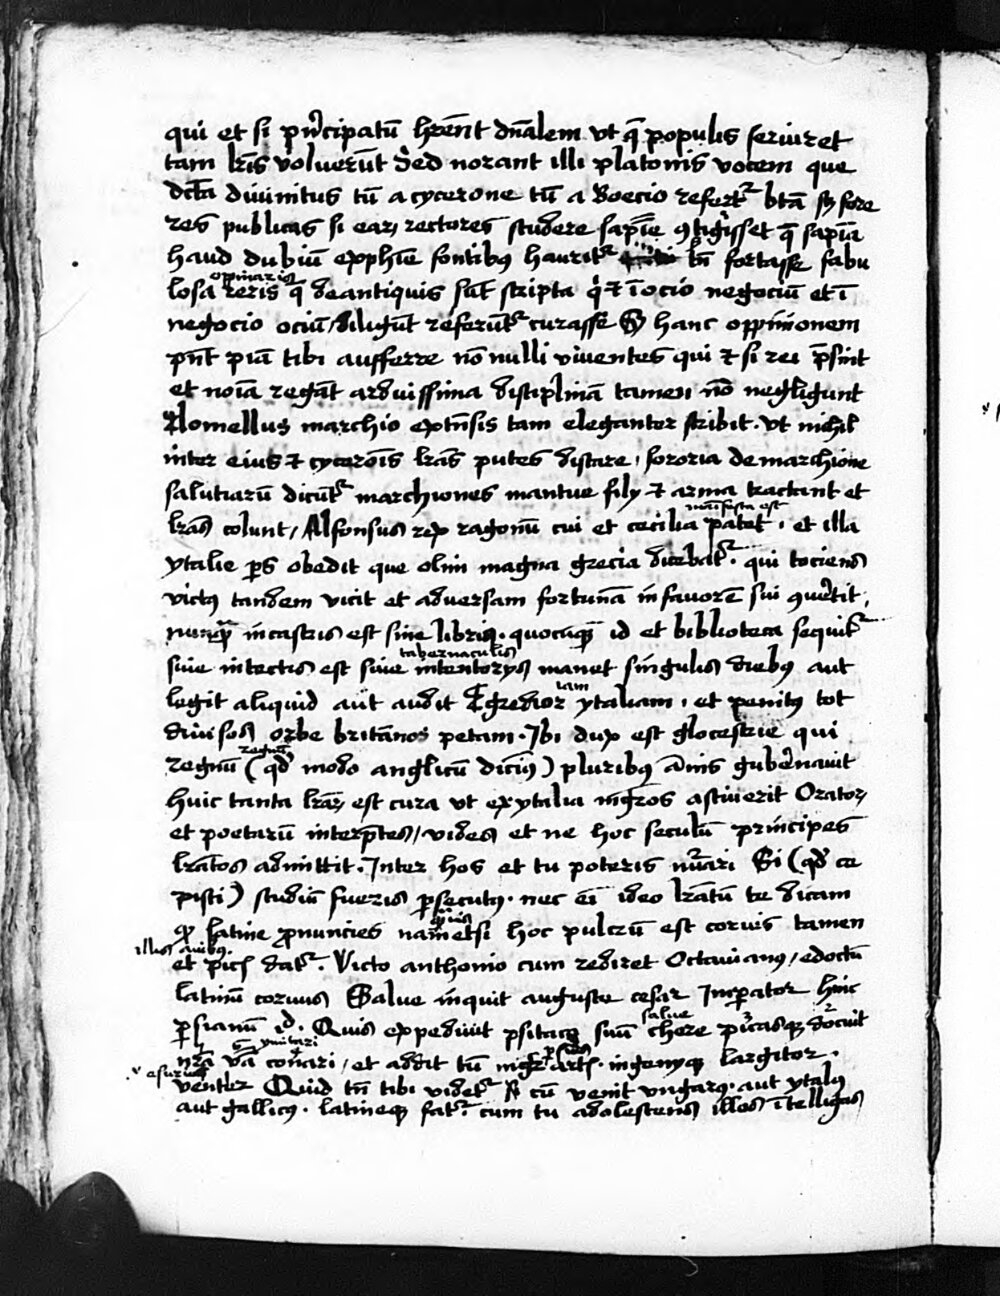 qui et si pncipatū hrēnt dnālem vt q̄ populis seruiret
tam lrīs voluerūt Sed norant illi platonis vocem que
dcta diuinitus tū a cycerone tū a Boecio refert btās fore
res publicas si earꝝ rectores studere sapīe ↄtigisset q̄ sapīa
haud dubiū ex phīe fontibꝰ haurit tn̄ fortasse fabu
opinaris
losa reris q̄ de antiquis sūt scripta qui et ī ocio negociū et ī
negocio ociū diligūt referūt curasse Sꝫ hanc oppinionem
pn̄t piā tibi aufferre nō nulli viuentes qui et si rei p̄sint
et noīa regāt arduissima disciplinā tamen nō negligunt
Leonellus marchio extn̄sis tam eleganter scribit . vt nichil
inter eius et cyceroīs lrās putes distare , sororia de marchione
salutiarū dicūt marchiones mantue filij et arma tractant et
manifesta est
lrās colunt / Alfonsus rex ragonū cui et cecilia patet , et illa
ytalie ps obedit que olim magna grecia dicebat . qui tociens
victꝰ tandem vicit et aduersam fortunā in fauorē sui ↄuertit ,
nunq̄ in castris est sine libris . quocūq̄ id et biblioteca sequit
tabernaculis
siue in tectis est siue intentorijs manet singulis diebꝰ aut
iam
legit aliquid aut audit Egredior ytaliam , et penitꝰ tot
diuisos orbe britānos petam . Ibi dux est glocestrie qui
regnū
regnū ( qd modo anglicū dicimꝰ ) pluribꝰ annis gubernauit
huic tanta lrārꝝ est cura vt ex ytalia mgros asciuerit Oratorꝝ
et poetarū interp̄tes / vides et ne hoc seculū principes
lrātos admittit . Inter hos et tu poteris nūari Si ( qd ce
pisti ) studiū fueris psecutꝰ . nec eī ideo lrātū te dicam
quauis
qꝫ latine pronuncies nam etsi hoc pulcrū est coruis tamen
illis auibus
et picis dat . Victo anthonio cum rediret Octauianꝰ / edoctū
latinū coruus Salue inquit auguste cesar Imperator hinc
salue
persianū id . Quis expediuit psitaco suū chere picasqꝫ docuit
ymitari
nrā vba conari / et addit tū mgr artis . ingenijqꝫ largitor .
esuriens
venter Quid tn̄ tibi videt si cū venit vngarꝰ . aut ytalꝰ
aut gallicꝰ . latineqꝫ fat . cum tu adolescens illos ītelligas